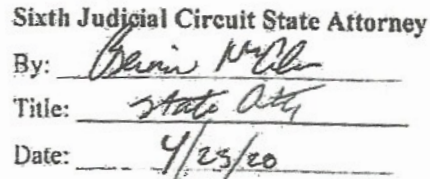 Sixth Judicial Circuit State Attorney
By:
Title: State Atty
Date: 4/23/20